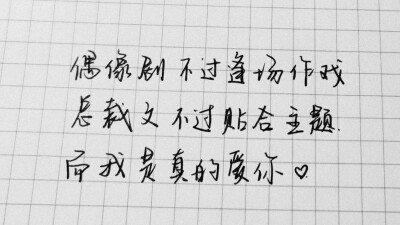 偶像剧不过逢场作戏
总裁文不过贴合主题.
而我是真的爱你♡